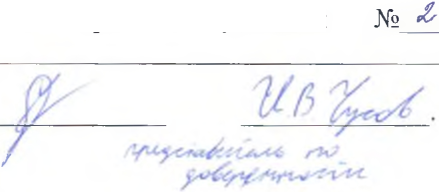 № 2
И.В Чусов.
представитель по
доверенности